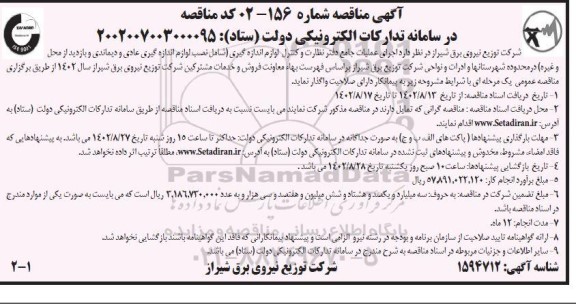 آگهی مناقصه شماره ۱۵۶-۰۲ کد مناقصه
در سامانه تدارکات الکترونیکی دولت (ستاد): ۲۰۰۲۰۰۷۰۰۳۰۰۰۰۹۵
شرکت توزیع نیروی برق شیراز در نظر دارد اجرای عملیات جامع دفتر نظارت و کنترل لوازم اندازه گیری (شامل نصب لوازم اندازه گیری عادی و دیماندی و بازدید از محل
و غیره) در محدوده شهرستانها و ادارات و نواحی شرکت توزیع برق شیراز بر اساس فهرست بهاء معاونت فروش و خدمات مشترکین شرکت توزیع نیروی برق شیراز سال ۱۴۰۲ از طریق برگزاری
مناقصه عمومی یک مرحله ای با شرایط مشروحه زیر به پیمانکار دارای صلاحیت واگذار نماید.
۱- تاریخ دریافت اسناد مناقصه: از تاریخ ۱۴۰۲/۸/۱۳ تا تاریخ ۱۴۰۲/۸/۱۷
۲- محل دریافت اسناد مناقصه: مناقصه گرانی که تمایل دارند در مناقصه مذکور شرکت نمایند می بایست نسبت به دریافت اسناد مناقصه از طریق سامانه تدارکات الکترونیکی دولت (ستاد) به
آدرس: www.Setadiran.ir اقدام نمایند.
۳- مهلت بارگذاری پیشنهادها (پاکت های الف، ب و ج) به صورت جداگانه در سامانه تدارکات الکترونیکی دولت: حداکثر تا ساعت ۱۵ روز شنبه تاریخ ۱۴۰۲/۸/۲۷ می باشد. به پیشنهادهایی که
فاقد امضاء، مشروط، مخدوش و پیشنهادهای ثبت نشده در سامانه تدارکات الکترونیکی دولت (ستاد) به آدرس: www.Setadiran.ir، مطلقاً ترتیب اثر داده نخواهد شد.
۴- تاریخ بازگشایی پیشنهادها: ساعت ۱۰ صبح روز یکشنبه تاریخ ۱۴۰۲/۸/۲۸ می باشد.
۵- مبلغ برآورد انجام کار: ۵۷،۸۹۱،۰۲۲،۱۲۰ ریال
۶- مبلغ تضمین شرکت در مناقصه: به حروف: سه میلیارد و یکصد و هشتاد و شش میلیون و هفتصد و سی هزار و به عدد ۳،۱۸۶،۷۳۰،۰۰۰ ریال است که می بایست به صورت یکی از موارد مندرج
در اسناد مناقصه باشد.
۷- مدت انجام: ۱۲ ماه.
۸- ارائه گواهینامه تایید صلاحیت از سازمان برنامه و بودجه در رشته نیرو الزامی است و پیشنهاد پیمانکارانی که فاقد این گواهینامه باشند بازگشایی نخواهد شد.
۹- سایر اطلاعات و جزئیات مربوطه در اسناد مناقصه به شرح مندرج در سامانه تدارکات الکترونیکی دولت (ستاد) می باشد.
شناسه آگهی: ۱۵۹۴۷۱۲ شرکت توزیع نیروی برق شیراز ۲-۱
ParsNamadData